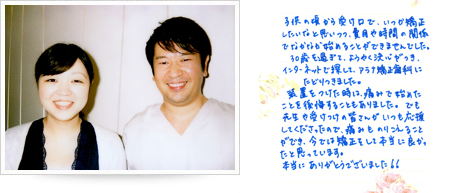 子供の頃から受け口で、いつか矯正
したいなと思いつつ、費用や時間の関係
でなかなか始めることができませんでした。
30歳を過ぎて、ようやく決心がつき、
インターネットで探して、アラタ矯正歯科に
たどりつきました。
装置をつけた時は、痛みで始めた
ことを後悔することもありました。でも
先生や受けつけの皆さんがいつも応援
してくださったので、痛みものりこえること
ができ、今では矯正をして本当に良かっ
たと思っています。
本当にありがとうございました